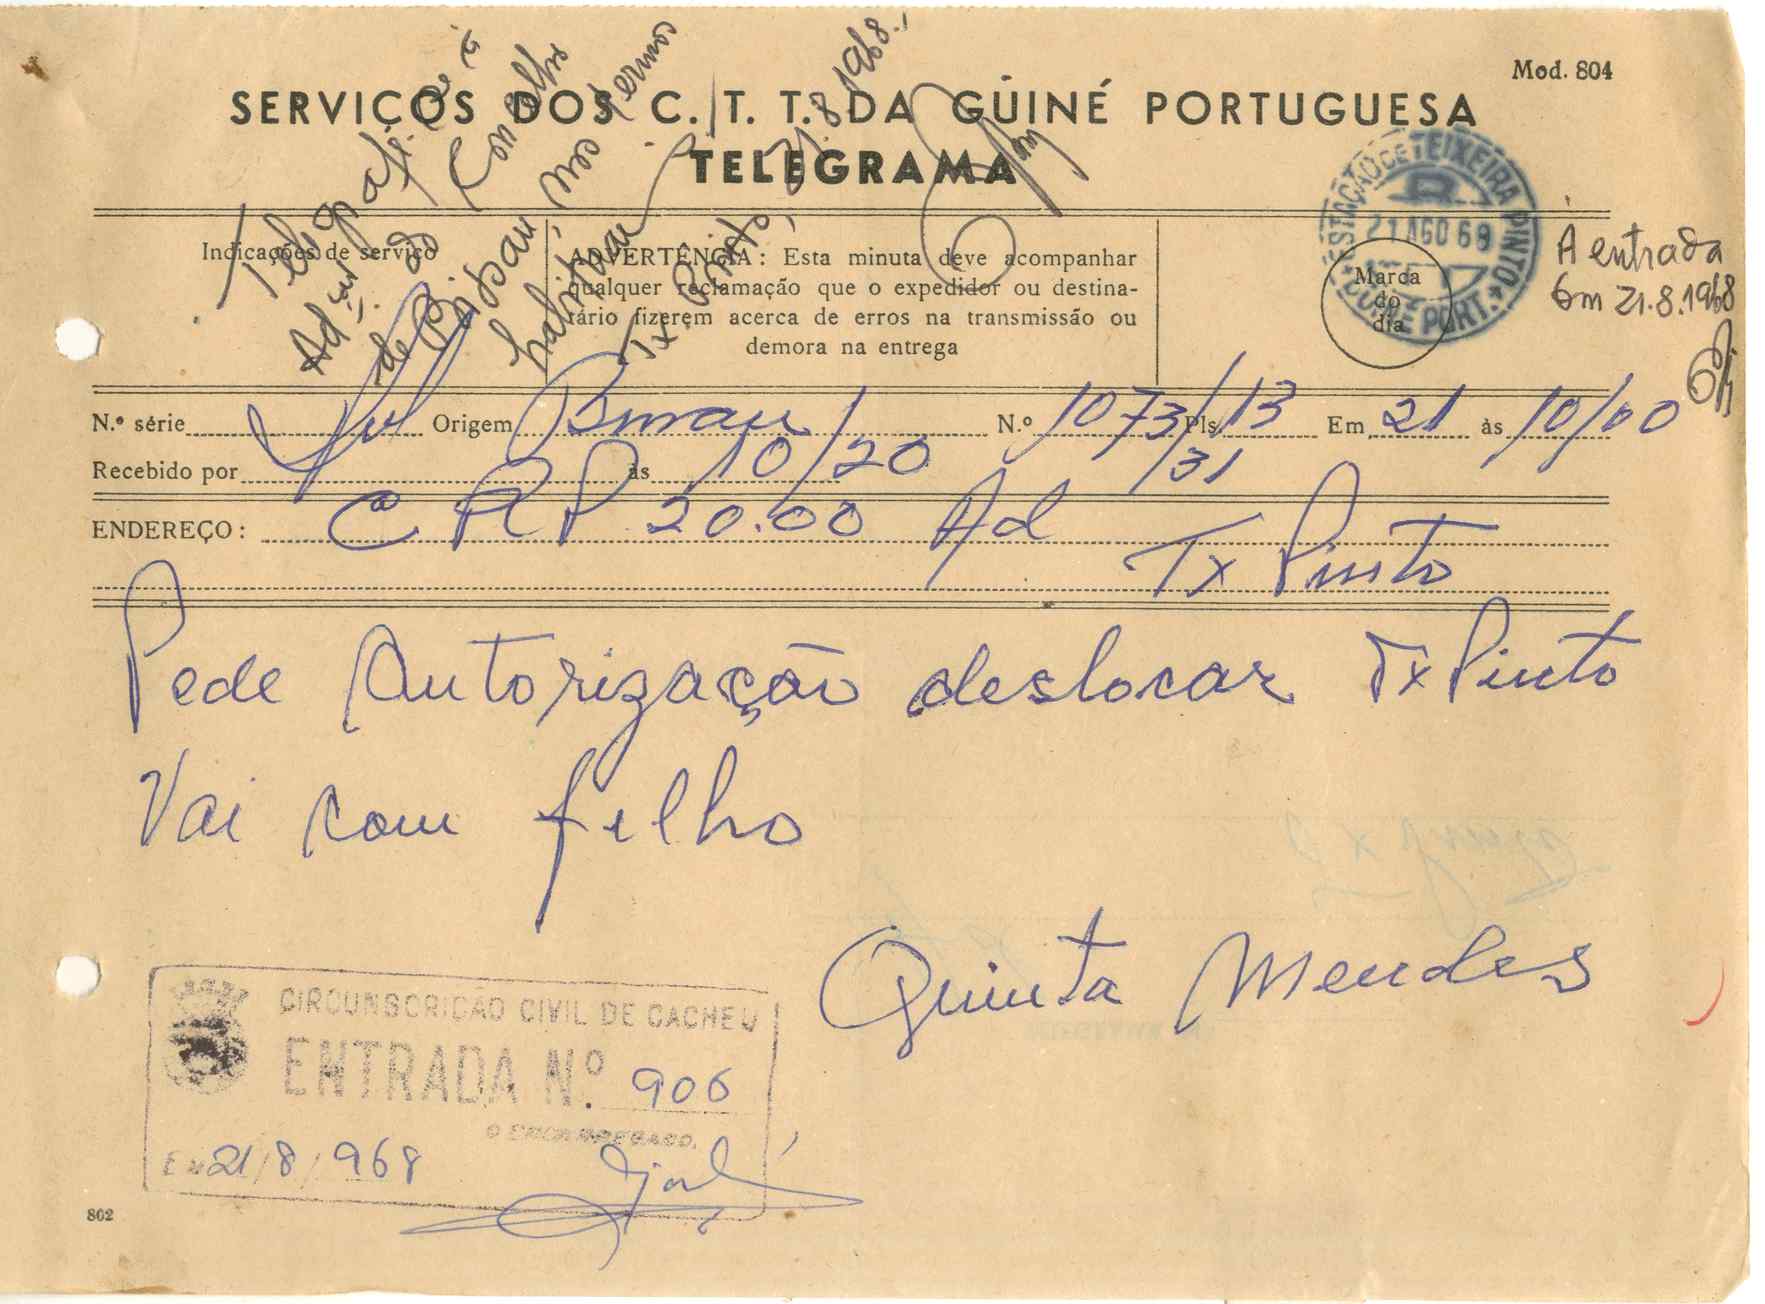 Mod. 804
SERVIÇOS DOS C. T. T. DA GÜINÉ PORTUGUESA
TELEGRAMA
Telegrafe-se à
Adm.
do Concelho
de Bissau, nos termos
habituais
Tx Pinto, 21.8.1968.
Indicações de serviço
ADVERTÊNCIA: Esta minuta deve acompanhar
qualquer reclamação que o expedidor ou destina-
tário fizerem acerca de erros na transmissão ou
demora na entrega
ESTAÇÃO DE TEIXEIRA PINTO
21 AGO 68
GUINÉ PORT.
Marca
do
dia
À entrada
Em 21.8.1968
N.º série Origem Bissau N.º 1073/ Pls. 13 Em 21 às 10/00
/31
Recebido por às 10/20
ENDEREÇO: C RP 20.00 Ad
Tx Pinto
Pede Autorização deslocar Tx Pinto
Vai com filho
Quinta Mendes
CIRCUNSCRIÇÃO CIVIL DE CACHEU
ENTRADA N.º 906
O ENCARREGADO,
EM 21/8/968
802